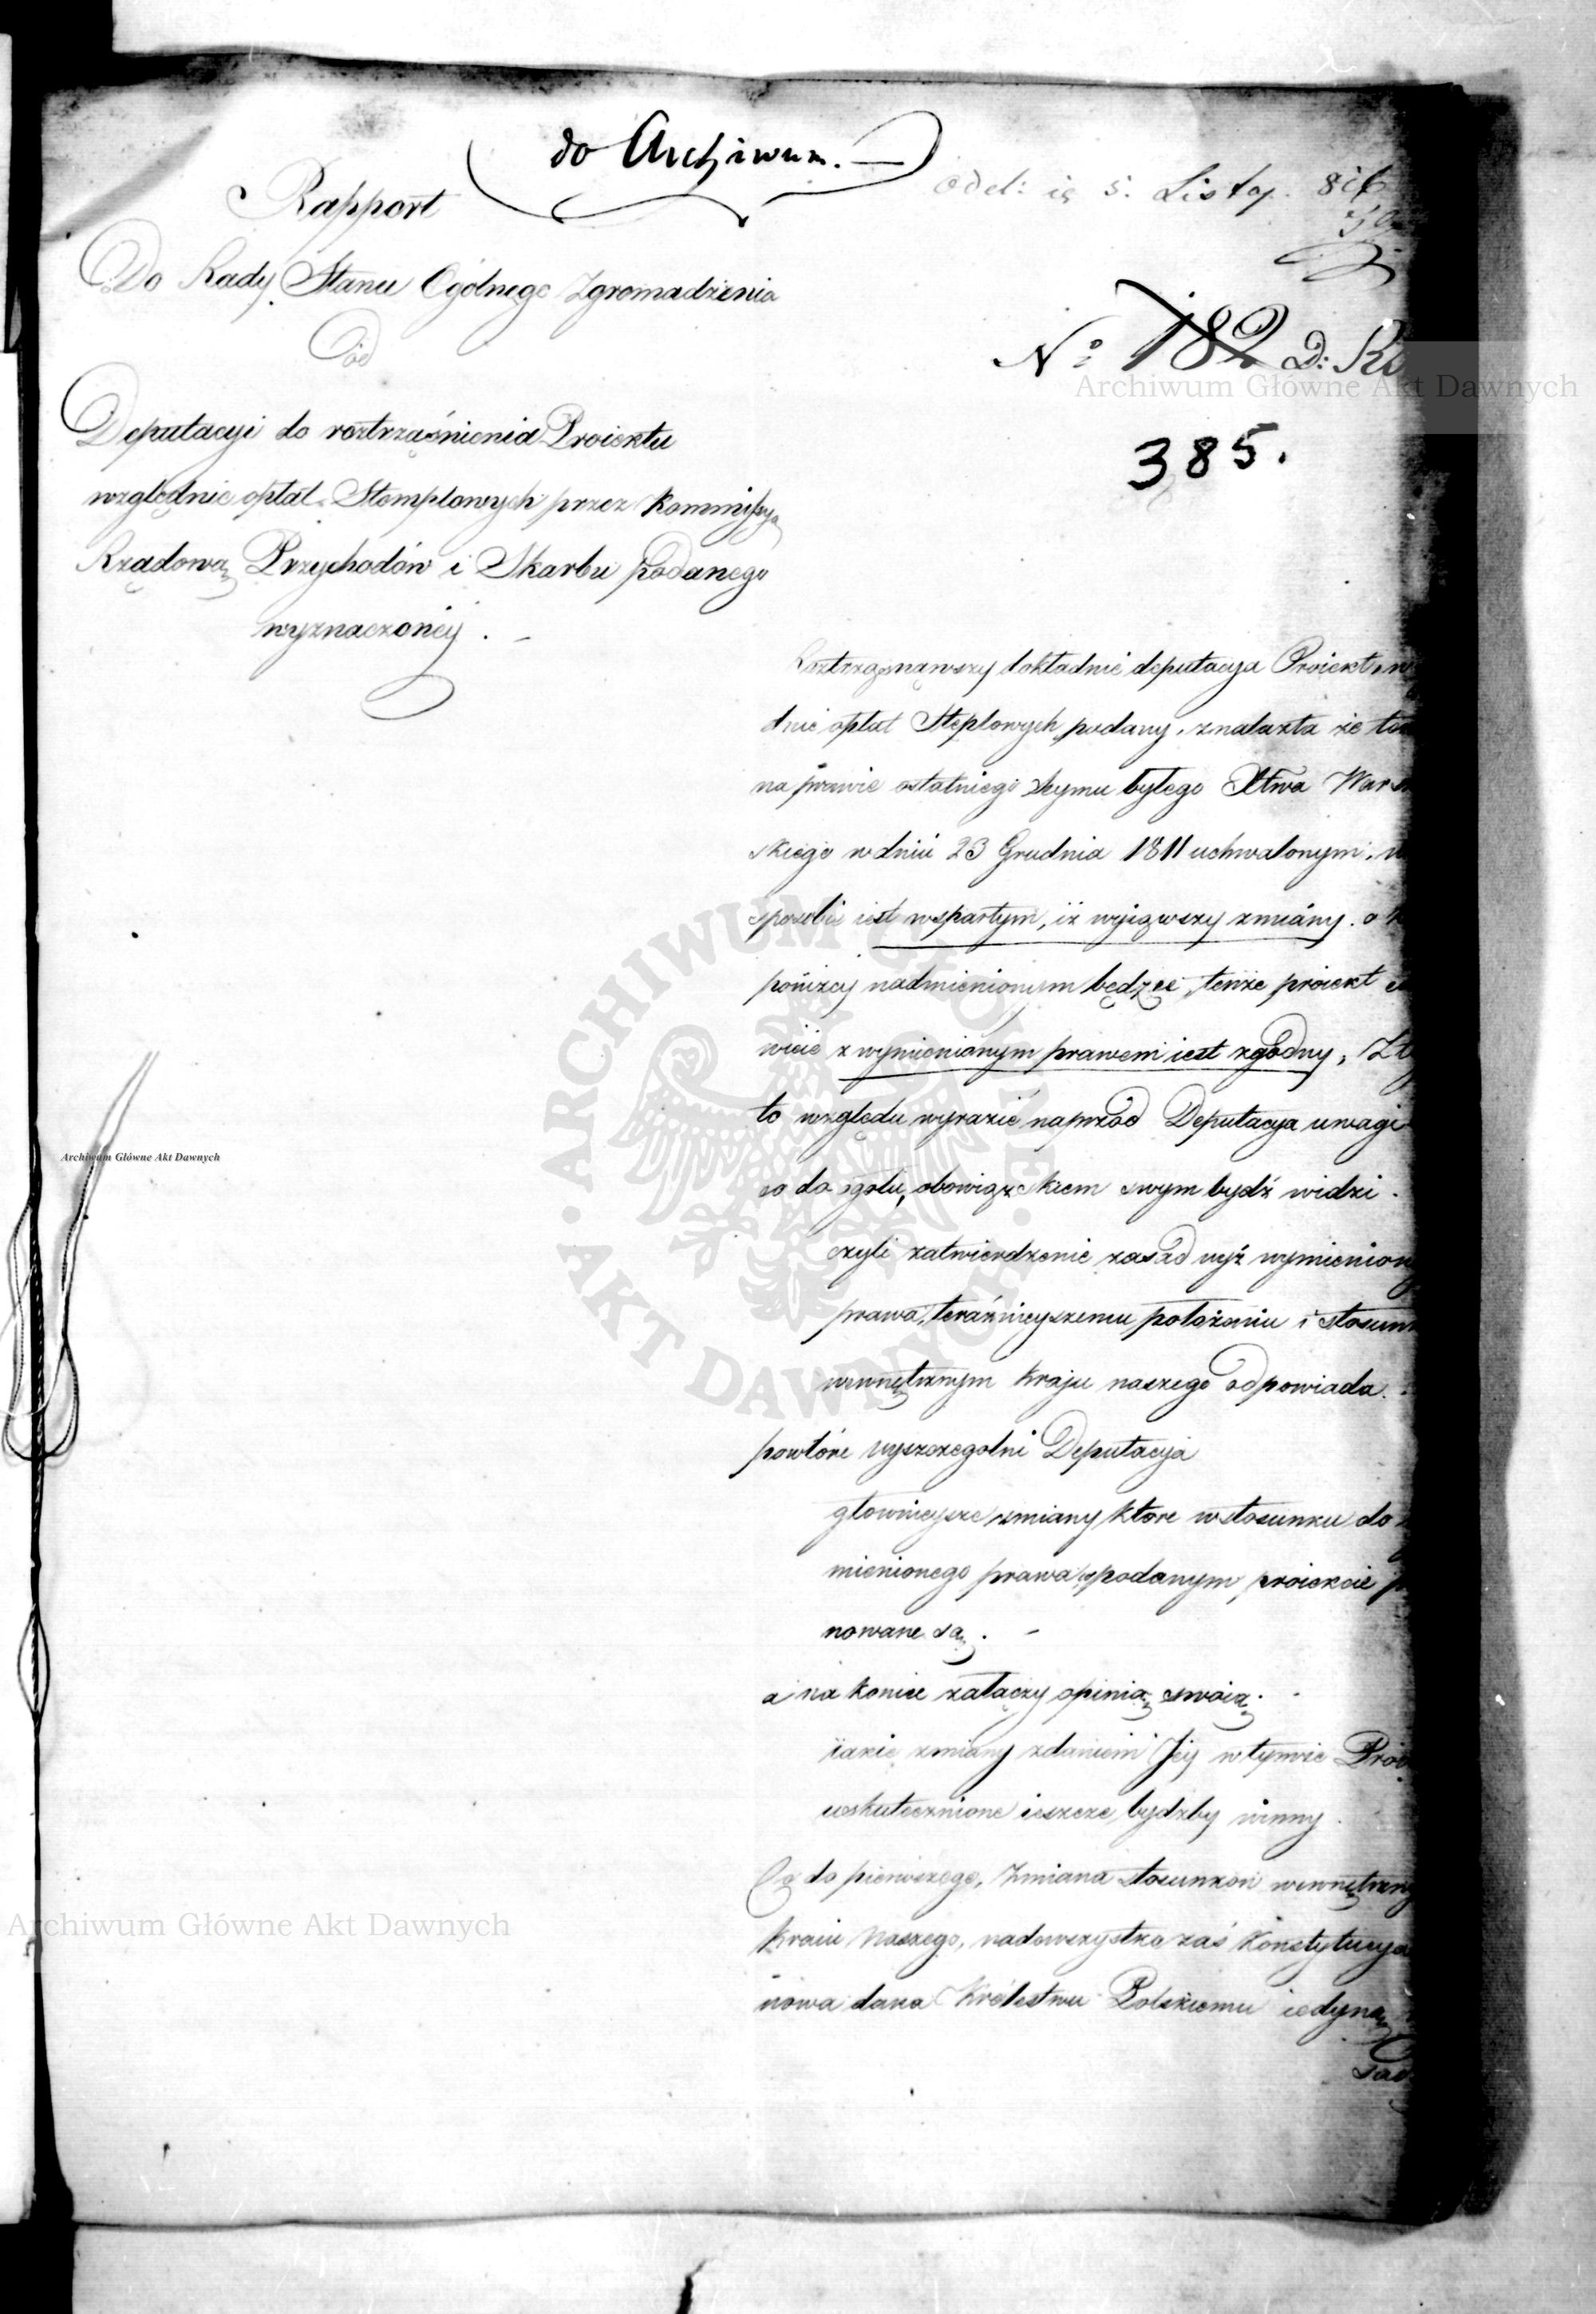 do Archiwum. —
Rapport
odel: ię 5. Listop. 816
Do Rady Stanu Ogólnego Zgromadzenia
Od
No 182 D:
385.
Deputacyi do roztrząśnienia Proiektu
względnie opłat Stemplowych przez Kommissyą
Rządową Przychodów i Skarbu podanego
wyznaczoney. —
Roztrząsnąwszy dokładnie deputacya Proiekt, w
dnie opłat Steplowych podany, znalazła że
na prawie ostatniego Seymu byłego Xtwa Warsza
skiego w dniu 23 Grudnia 1811 uchwalonym, w
sposobie iest wspartym, iż wyiąwszy zmiány. o
poniżey nadmienionym będzie, tenże proiekt
wicie z wymienionym prawem iest zgodny, Z
to względu wyrazić naprzód Deputacya uwagi
co do ogółu, obowiązkiem swym bydź widzi.
czyli zatwierdzenie zasad wyż wymienion
prawa, teráźnieyszemu położeniu i stosun
wewnętrznym Kraju naszego odpowiada.
powtóre wyszczegolni Deputacyja
głownieysze zmiany które w stosunku do
mienionego prawa w podanym proiekcie
nowane są. —
a na koniec załączy opinią swoią. -
iakie zmiany zdaniem Jey w tymże
uskutecznione ieszcze bydźby winny.
Co do pierwszego, Zmiana stosunków wewnętrzny
Kraiu Naszego, nadewszystko zaś Konstytucya
nowa dana Królestwu Polskiemu iedyną
Archiwum Główne Akt Dawnych
Archiwum Główne Akt Dawnych
Archiwum Główne Akt Dawnych
ARCHIWUM GŁÓWNE · AKT DAWNYCH ·